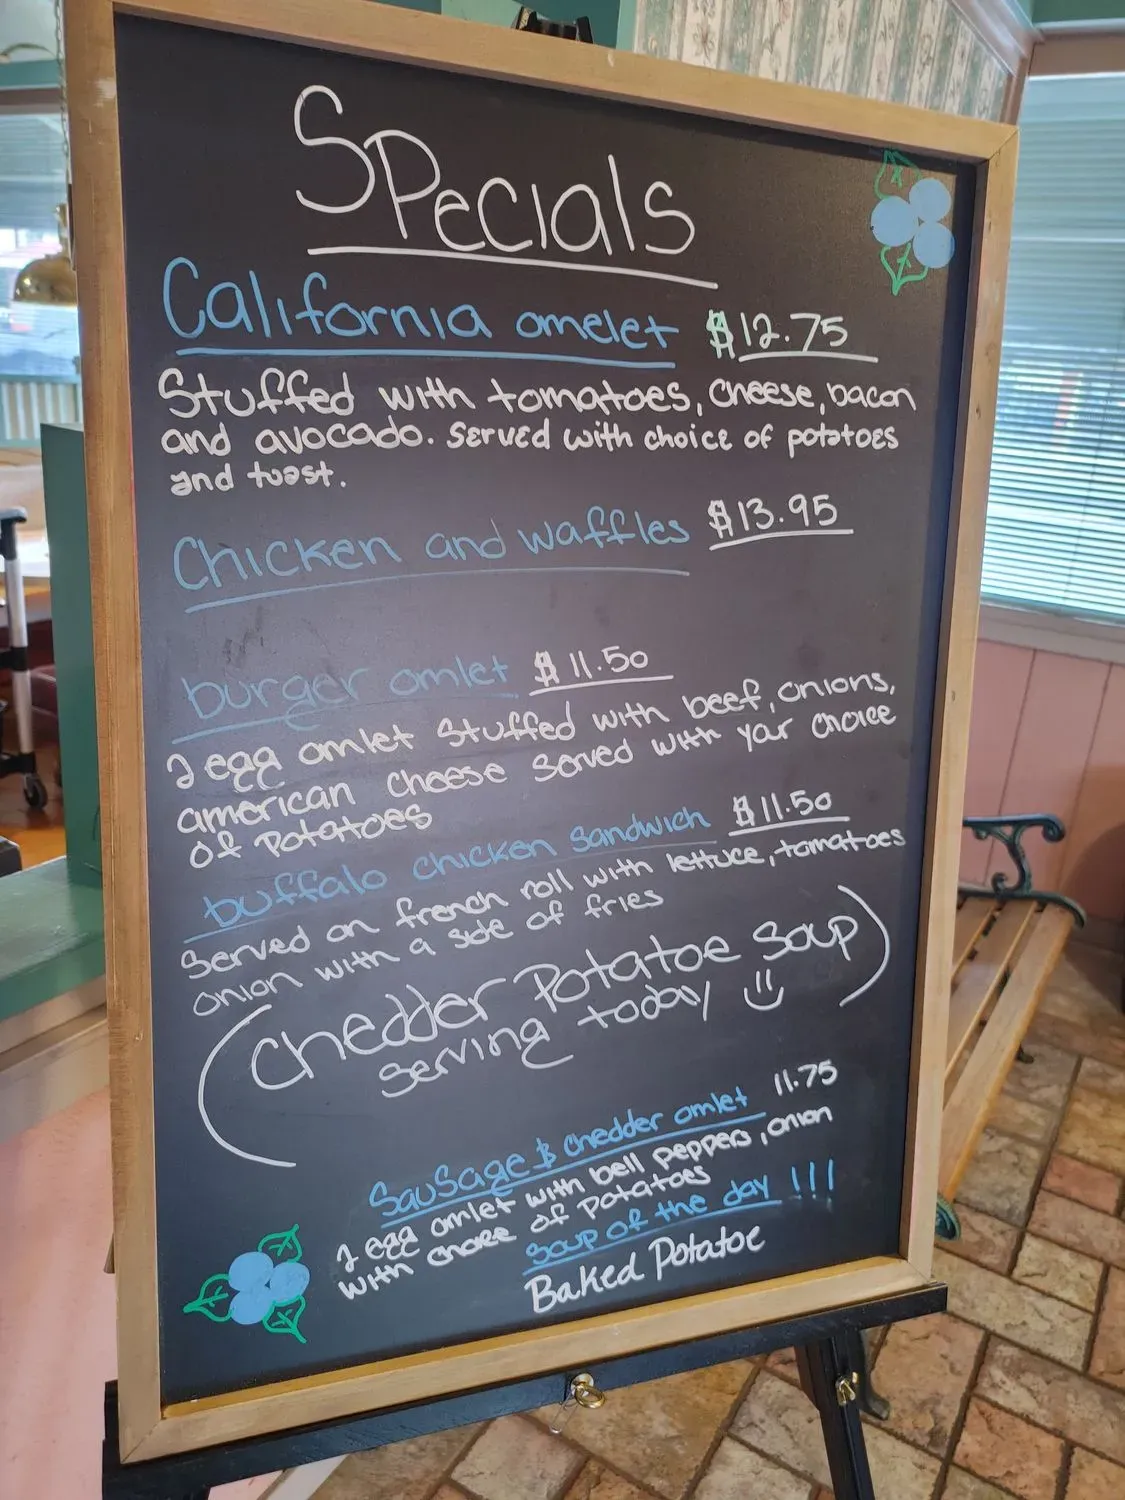 Specials
California omelet $12.75
Stuffed with tomatoes, cheese, bacon
and avocado. Served with choice of potatoes
and toast.
Chicken and waffles $13.95
burger omlet $11.50
2 egg omlet stuffed with beef, onions,
american cheese served with your choice
of potatoes
buffalo chicken sandwich $11.50
served on french roll with lettuce, tomatoes
onion with a side of fries
(Chedder Potatoe Soup)
serving today
Sausage & chedder omlet 11.75
2 egg omlet with bell peppers, onion
with choice of potatoes
soup of the day !!!
Baked Potatoe